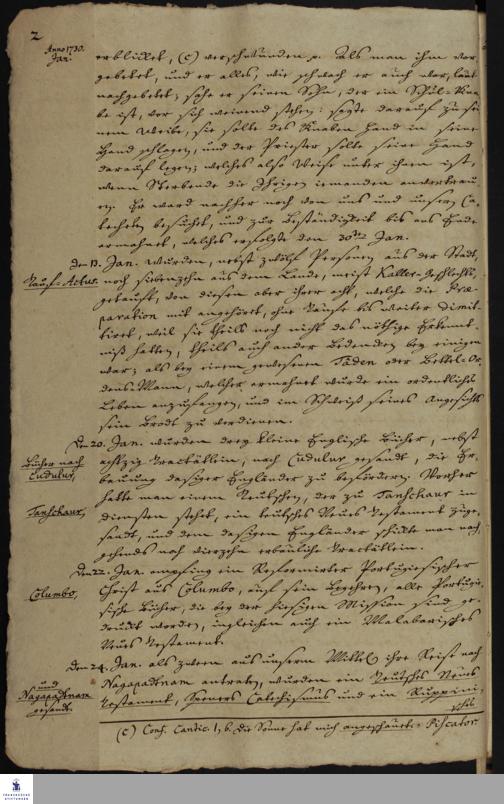 2
Anno 1730.
Jan.
erblicket, (c) verschwunden p. Als man ihm vor
gebetet, und er alles, wie schwach er auch war, laut
nachgebetet; sahe er seinen Sohn, der ein Schul-Kna
be ist, vor sich weinend stehen: sagte darauf zu sei
nem Weibe, sie solte des Knaben Hand in seine
Hand schlagen, und der Priester solte seine Hand
darauf legen; welches also Weise unter ihnen ist,
wenn Sterbende die Ihrigen iemanden anvertrau-
en. Er ward nachher noch von uns und unsern Ca-
techeten besuchet, und zur Beständigkeit bis ans Ende
ermahnet, welches erfolgte den 30ten Jan.
Tauf-Actus.
den 13. Jan. wurden, nebst zwölf Personen aus der Stadt,
noch siebenzehn aus dem Lande, meist Kaller-Geschlechts,
getauft, von diesen aber ihrer acht, welche die Præ-
paration mit angehöret, ohne Taufe bis weiter dimit-
tiret, weil sie theils noch nicht das nöthige Erkennt-
niß hatten, theils auch ander Bedencken bey einigen
war; als bey einem gewesenen Táden oder Bettel-Or-
dens-Mann, welcher ermahnet wurde ein ordentliches
Leben anzufangen, und im Schweiß seines Angesichts
sein Brodt zu verdienen.
Bücher nach
Cudulur,
Den 20. Jan. wurden drey kleine Englische Bücher, nebst
achtzig Tractätlein, nach Cudulur gesandt, die Er-
bauung dasiger Engländer zu befördern. Vorher
Tanschaur,
hatte man einem Teutschen, der zu Tanschaur in
Diensten stehet, ein teutsches Neues Testament zuge-
sandt, und dem dasigen Engländer schickte man nach-
gehends noch vierzehn erbauliche Tractätlein.
Columbo,
Den 22. Jan. empfing ein Reformirter Portugiesischer
Christ aus Columbo, auf sein Begehren, alle Portugie-
sische Bücher, die bey der hiesigen Mission sind ge-
druckt worden, ingleichen auch ein Malabarisches
Neues Testament.
und
Nagapatnam
gesandt.
Den 24. Jan. als zween aus unserm Mittel ihre Reise nach
Nagapatnam antraten, wurden ein Teutsches Neues
Testament, Speners Catechismus und ein Ruppini-
sches
(c) Conf. Cantic. 1, 6. Die Sonne hat mich angeschauet. Piscator.